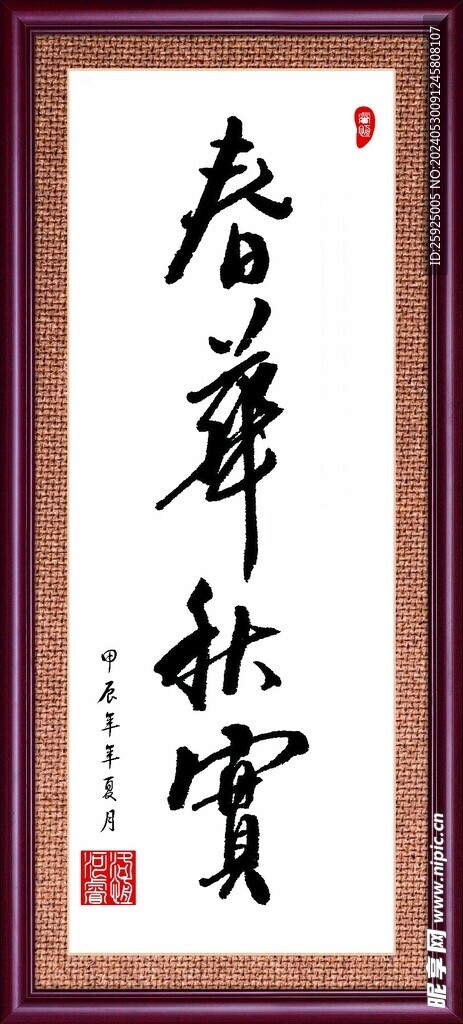 春華秋實
甲辰年年夏月
ID:25925005 NO:20240530091245808107
昵享网 www.nipic.cn